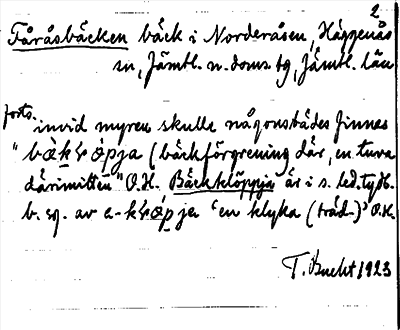 2
Fåråsbäcken bäck i Norderåsen, Häggenås
sn, Jämtl. n. doms. tg, Jämtl. län
forts.
invid myren skulle någonstädes finnas
"bœkkɫópja (bäckförgrening där, en tuva
därimitten" O.H. Bäckklöppja är i s. led. ty H.
b. sg. av e-kɫópja 'en klyka (träd-)' O.H.
T. Bucht 1923